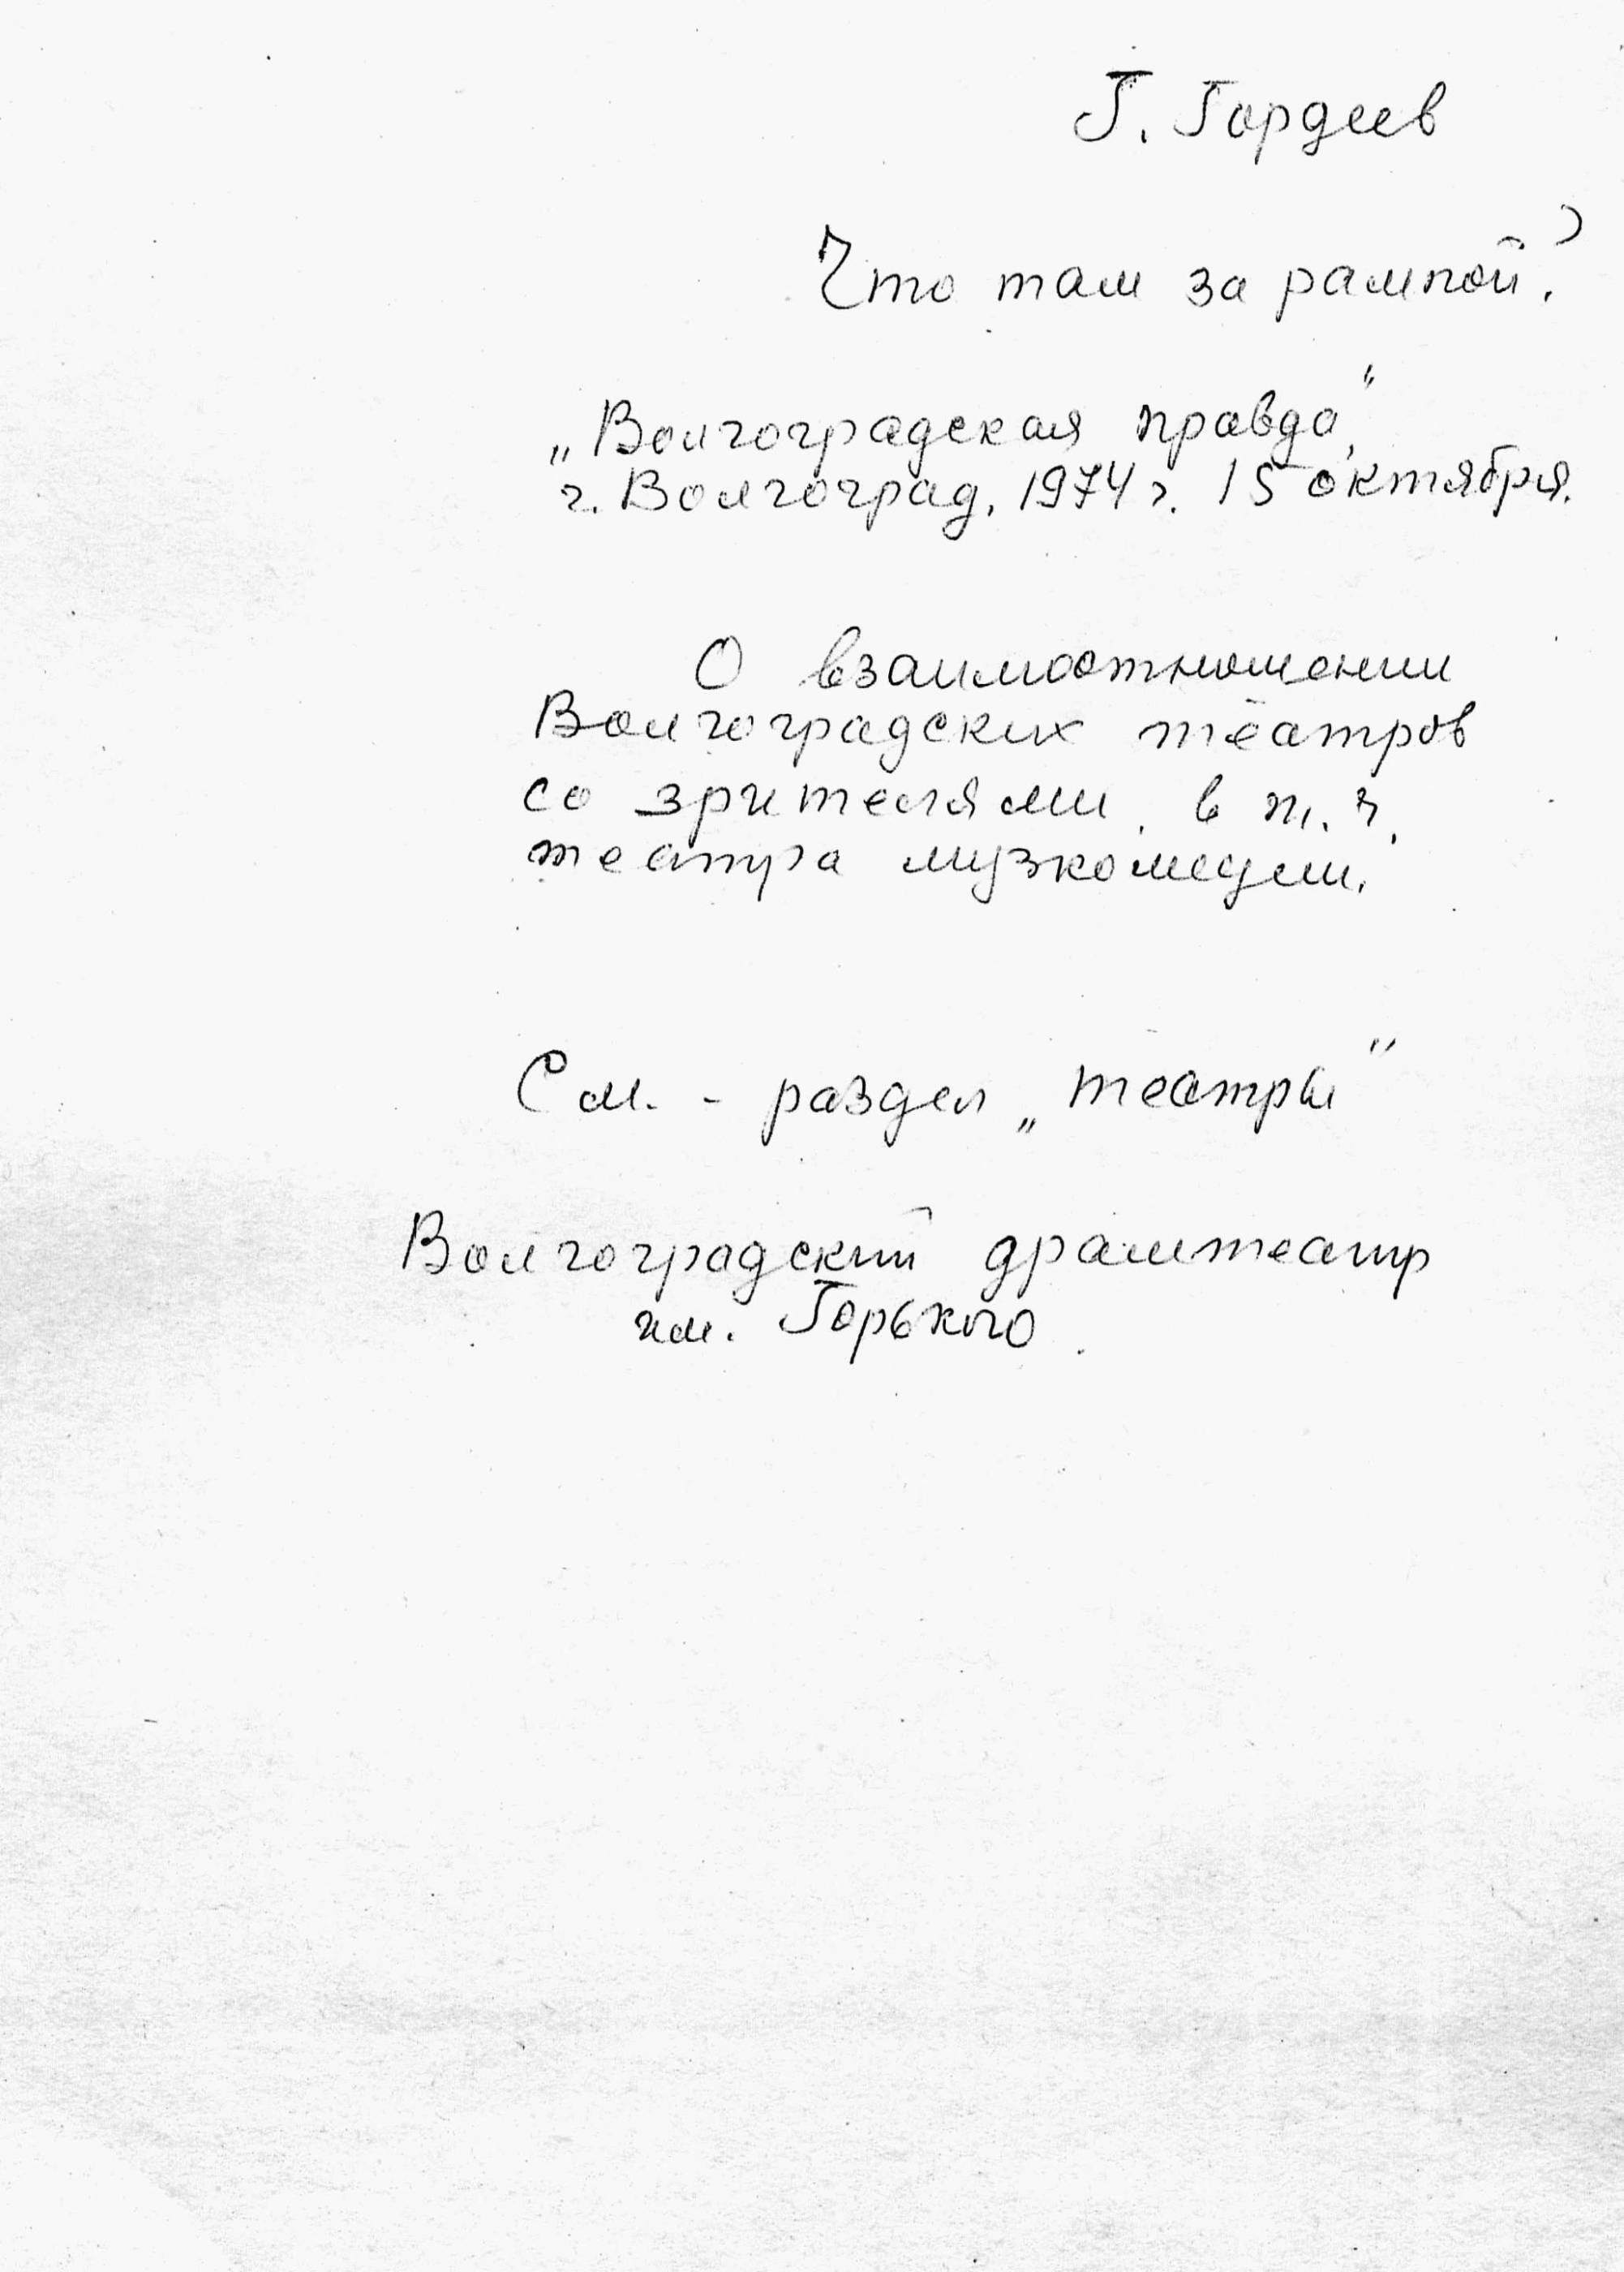 Г. Гордеев
Что там за рампой?
„Волгоградская правда",
г. Волгоград, 1974 г. 15 октября.
О взаимоотношении
Волгоградских театров
со зрителями, в т. ч.
театра музкомедии.
См. - раздел „театры"
Волгоградский драмтеатр
им. Горького